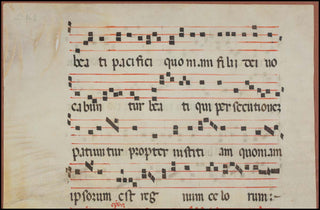 bea ti pacifici quoniam filii dei uo
cabun tur bea ti qui persecutionez
patiuntur propter iusticiam quoniam
ipsorum est reg num celo rum:-